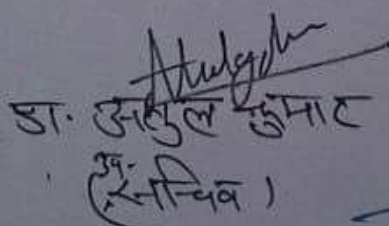 डा. अतुल कुमार
उप-
(सचिव)